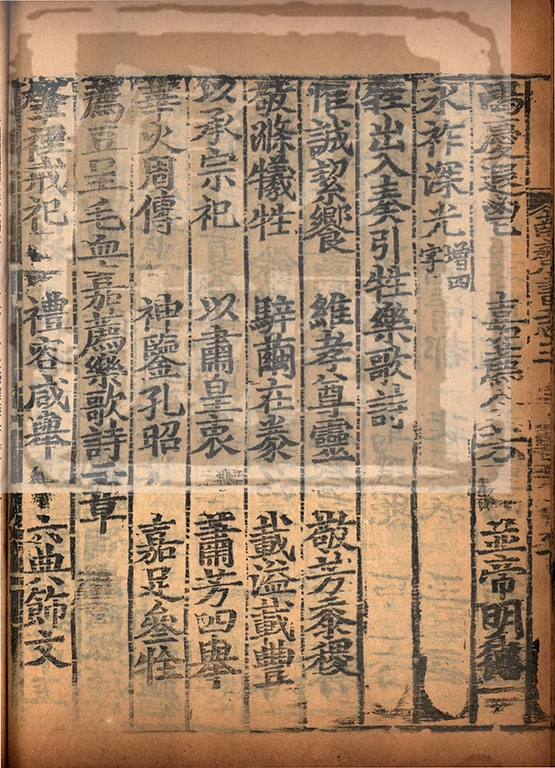 鴻慶遐鬯　嘉薦令芳　並帝明德
永祚深光增四字
牲出入奏引牲樂歌詩
惟誠絜饗　維孝尊靈　敬芳黍稷
敬滌犧牲　騂繭在豢　載溢載豐
以承宗祀　以肅皇衷　蕭芳四舉
華火周傳　神鑒孔昭　嘉足參牷
薦豆呈毛血嘉薦樂歌詩二章
肇禋戒祀　禮容咸舉　六典飾文